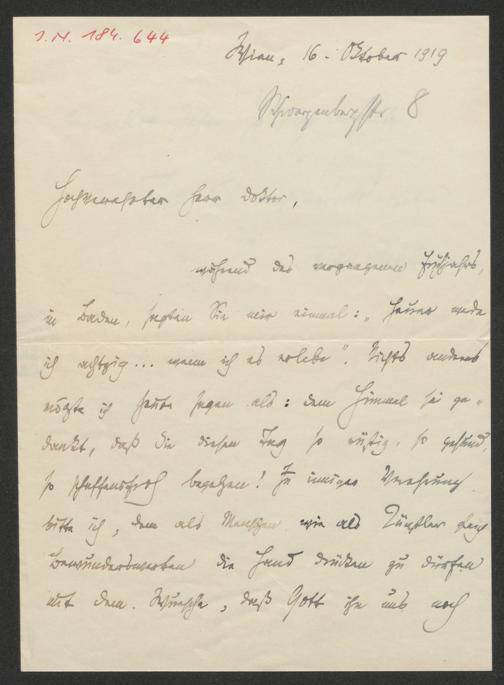 J.N. 184.644
Wien, 16. Oktober 1919
Schwarzenbergstr 8
Hochverehrter Herr Doktor,
während des vergangenen Frühjahrs,
in Baden, sagten Sie mir einmal: „Heuer werde
ich achtzig... wenn ich es erlebe". Nichts anderes
möchte ich heute sagen als: dem Himmel sei ge-
dankt, daß Sie diesen Tag so rüstig, so gesund,
so schaffensfroh begehen! In inniger Verehrung
bitte ich, dem als Menschen wie als Künstler gleich
Bewundernswerten die Hand drücken zu dürfen
mit dem Wunsche, daß Gott ihn uns noch